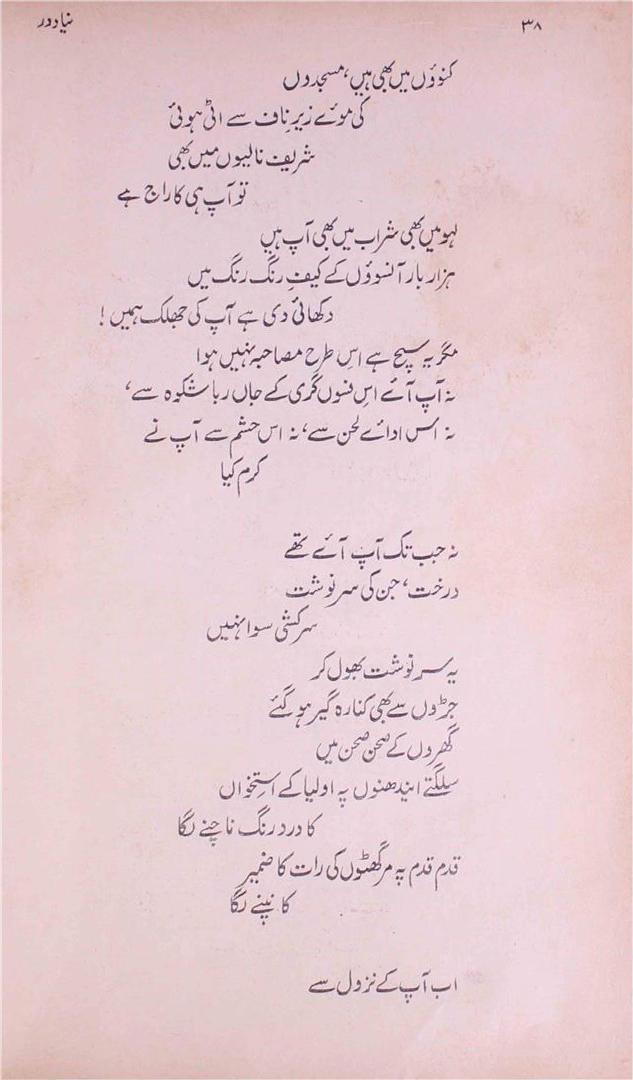 ۳۸
نیا دور
کنوؤں میں بھی ہیں، مسجدوں
کی موئے زیرِ ناف سے اٹی ہوئی
شریف نالیوں میں بھی
تو آپ ہی کا راج ہے
لہو میں بھی شراب میں بھی آپ ہیں
ہزار بار آنسوؤں کے کیفِ رنگ رنگ میں
دکھائی دی ہے آپ کی جھلک ہمیں!
مگر یہ سچ ہے اس طرح مصاحبہ نہیں ہوا
نہ آپ آئے اس فسوں گری کے جاں ربا شکوہ سے،
نہ اس ادائے لحن سے، نہ اس حشم سے آپ نے
کرم کیا
نہ جب تک آپ آئے تھے
درخت، جن کی سرنوشت
سرکشی سوا نہیں
یہ سرنوشت بھول کر
جڑوں سے بھی کنارہ گیر ہو گئے
گھروں کے صحن صحن میں
سلگتے ایندھنوں پہ اولیا کے استخواں
کا درد رنگ ناچنے لگا
قدم قدم پہ مرگھٹوں کی رات کا ضمیر
کانپنے لگا
اب آپ کے نزول سے